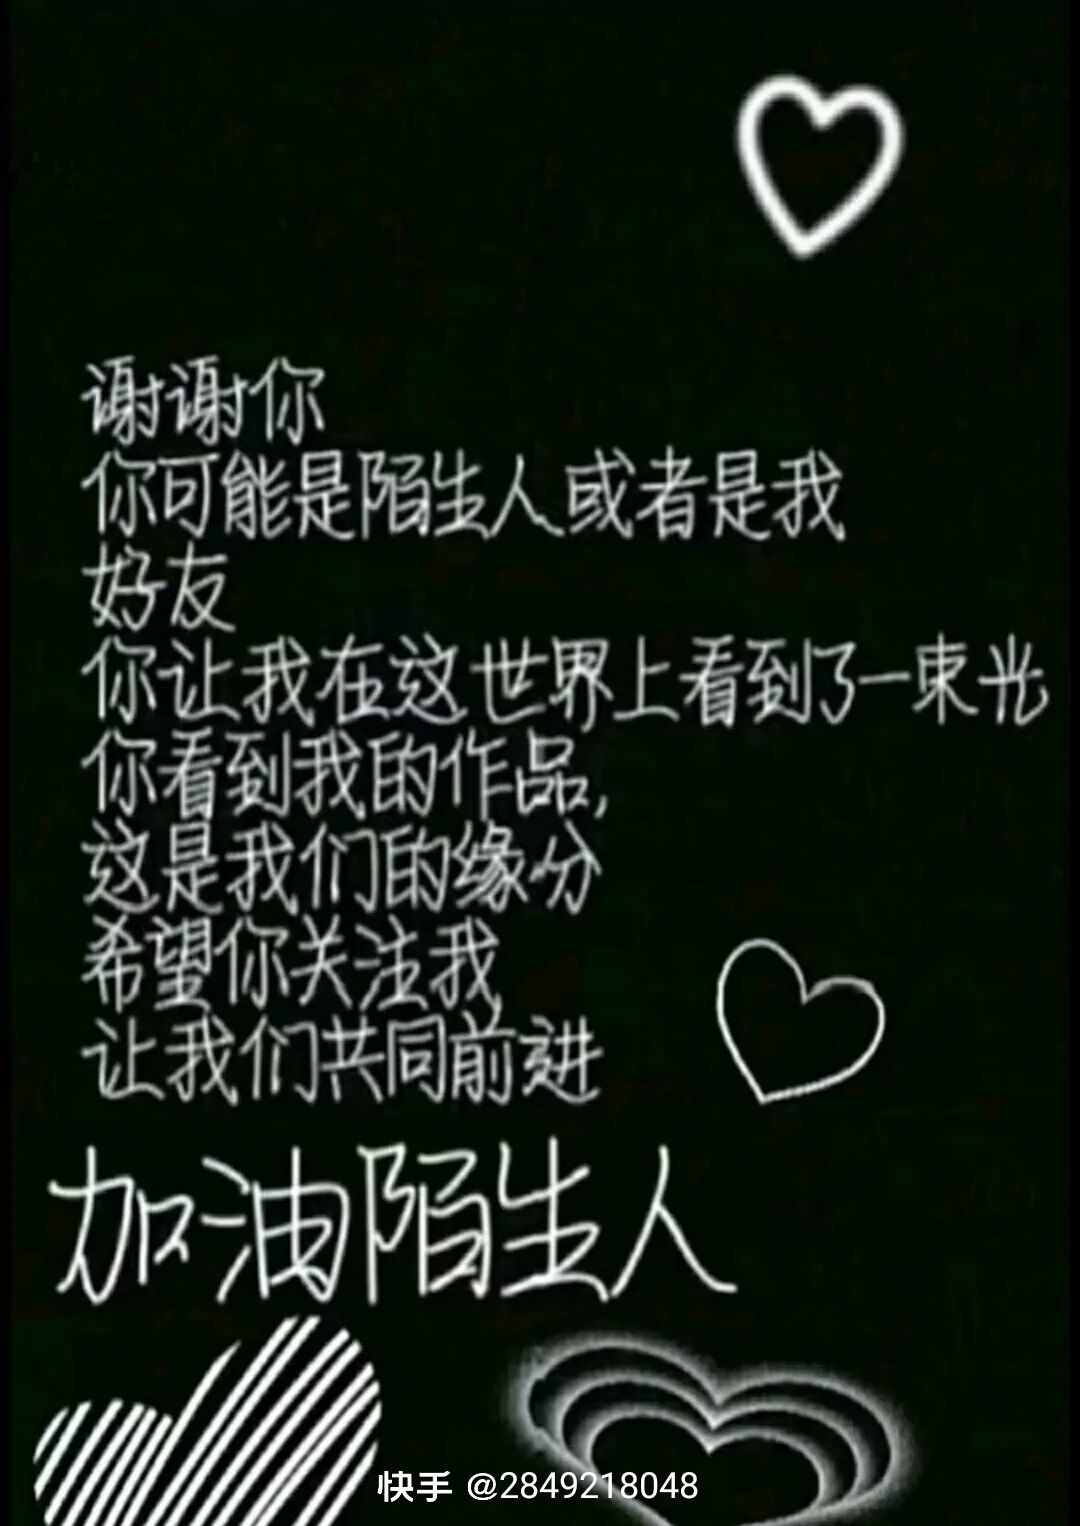 谢谢你
你可能是陌生人或者是我
好友
你让我在这世界上看到了一束光
你看到我的作品,
这是我们的缘分
希望你关注我
让我们共同前进
加油陌生人
快手 @2849218048